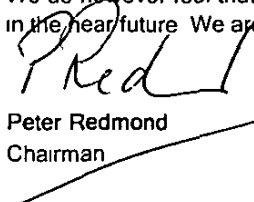 in the near future We are
P Red
Peter Redmond
Chairman